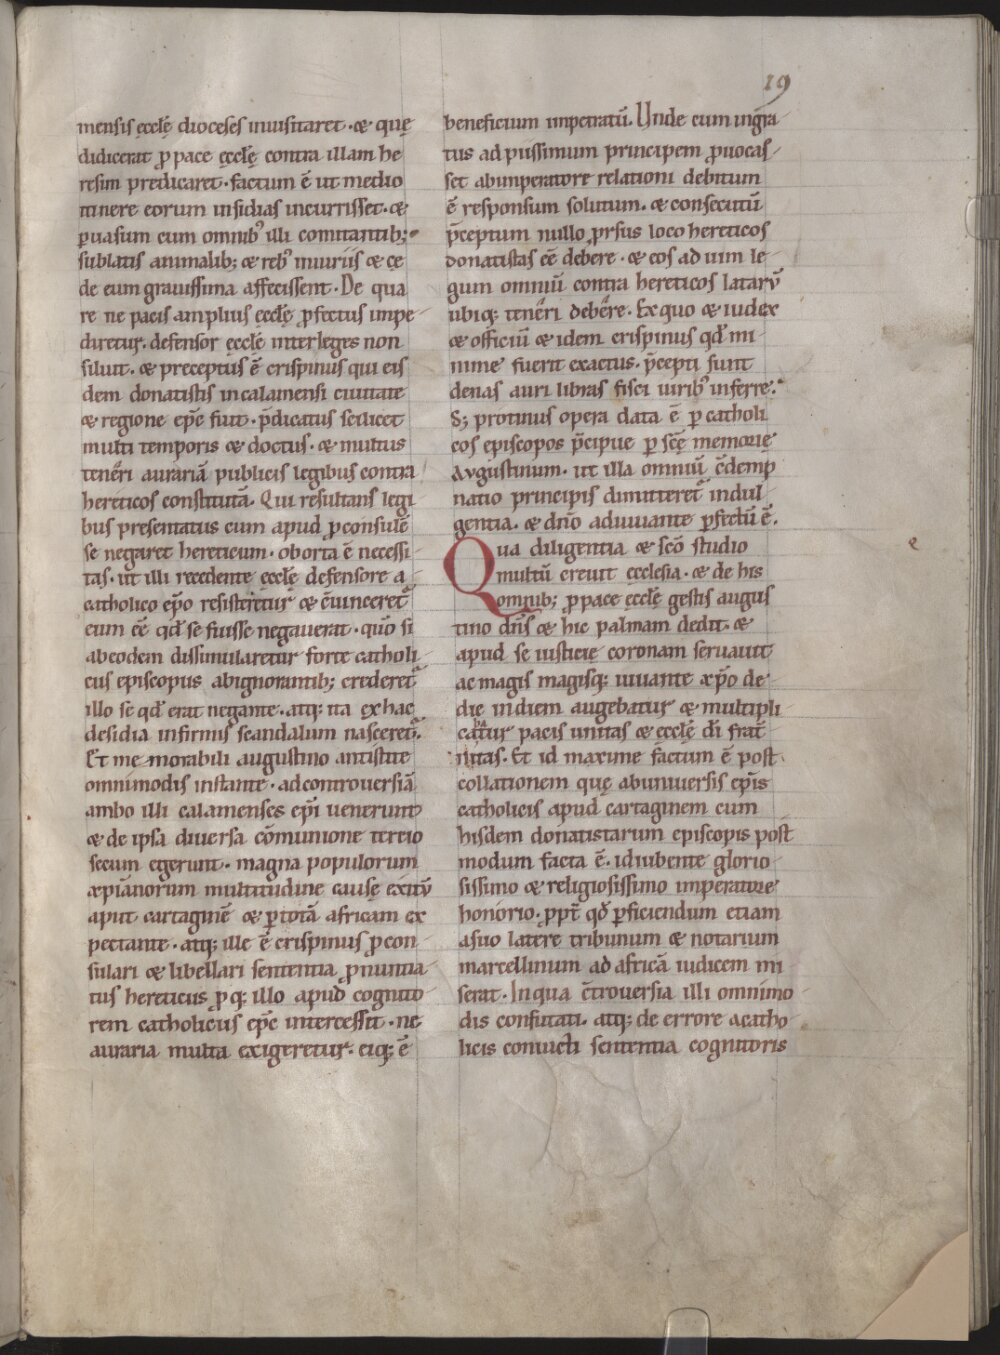 19
mensis ęcclę̄ dioceses inuisitaret · & quę
didicerat ꝓ pace ęcclę̄ contra illam he
resim predicaret · factum ē ut medio
itinere eorum insidias incurrisset · &
ꝑuasum cum omnibꝰ illi comitantib;
sublatis animalib; & rebꝰ iniuriis & cę
de eum grauissima affecissent · De qua
re ne pacis amplius ęcclę̄ ꝓfectus impe
diretur · defensor ęcclę̄ inter leges non
siluit · & preceptus ē crispinus qui eis
dem donatistis in calamensi ciuitate
& regione ep̄c fuit · p̄dicatus scilicet
multi temporis & doctus · & multus
teneri aurariā publicis legibus contra
hereticos constitutā · Qui resultans legi
bus presentatus cum apud ꝓconsulē
se negaret hereticum · oborta ē necessi
tas · ut illi recedente ęcclę̄ defensore a
catholico ep̄o resisteretur & c̄uinceret᷑
eum eē qđ se fuisse negauerat · quō si
ab eodem dissimularetur forte catholi
cus episcopus ab ignorantib; crederet᷑
illo se qđ erat negante · atq; ita ex hac
desidia infirmis scandalum nasceret᷑ ·
Et me morabili augustino antistite
omnimodis instante · ad controuersiā
ambo illi calamenses ep̄i uenerunt
& de ipsa diuersa cōmunione tertio
secum egerunt · magna populorum
xp̄ianorum multitudine causę exitū
aput cartaginē & ꝑ totā africam ex
pectante · atq; ille ē crispinus ꝓcon
sulari & libellari sententia ꝓnuntia
tus hereticus ꝓ q; illo apud cognito
rem catholicus ep̄c intercessit · ne
auraria multa exigeretur · eiq; ē
beneficium impetratū · Unde cum ingra
tus ad piissimum principem ꝓuocas
set ab imperatore relationi debitum
ē responsum solutum · & consecutū
p̄ceptum nullo ꝓrsus loco hereticos
donatistas eē debere · & eos ad uim le
gum omniū contra hereticos latarū
ubiq; teneri debere · Ex quo & iudex
& officiū & idem crispinus qđ mi
nime fuerit exactus · p̄cepti sunt
denas auri libras fisci iuribꝰ inferre ·
S; protinus opera data ē ꝑ catholi
cos episcopos p̄cipue ꝑ scę̄ memorię
Avgustinum · ut illa omniū c̄demp
natio principis dimitteret᷑ indul
gentia · & dn̄o adiuuante ꝑfectū ē ·
Qua diligentia & scō studio
multū creuit ecclesia · & de his
omnib; ꝓ pace ęcclę̄ gestis augus
tino dn̄s & hic palmam dedit · &
apud se iusticię coronam seruauit
ac magis magisq; iuuante xp̄o de
die in diem augebatur & multipli
cabatur pacis unitas & ęcclę̄ dī frat̄
nitas · Et id maxime factum ē post
collationem quę ab uniuersis ep̄is
catholicis apud cartaginem cum
hisdem donatistarum episcopis post
modum facta ē · id iubente glorio
sissimo & religiosissimo imperatore
honorio · ꝓpt̄ qđ ꝑficiendum etiam
a suo latere tribunum & notarium
marcellinum ad africā iudicem mi
serat · In qua c̄trouersia illi omnimo
dis confutati · atq; de errore a catho
licis conuicti sententia cognitoris
e